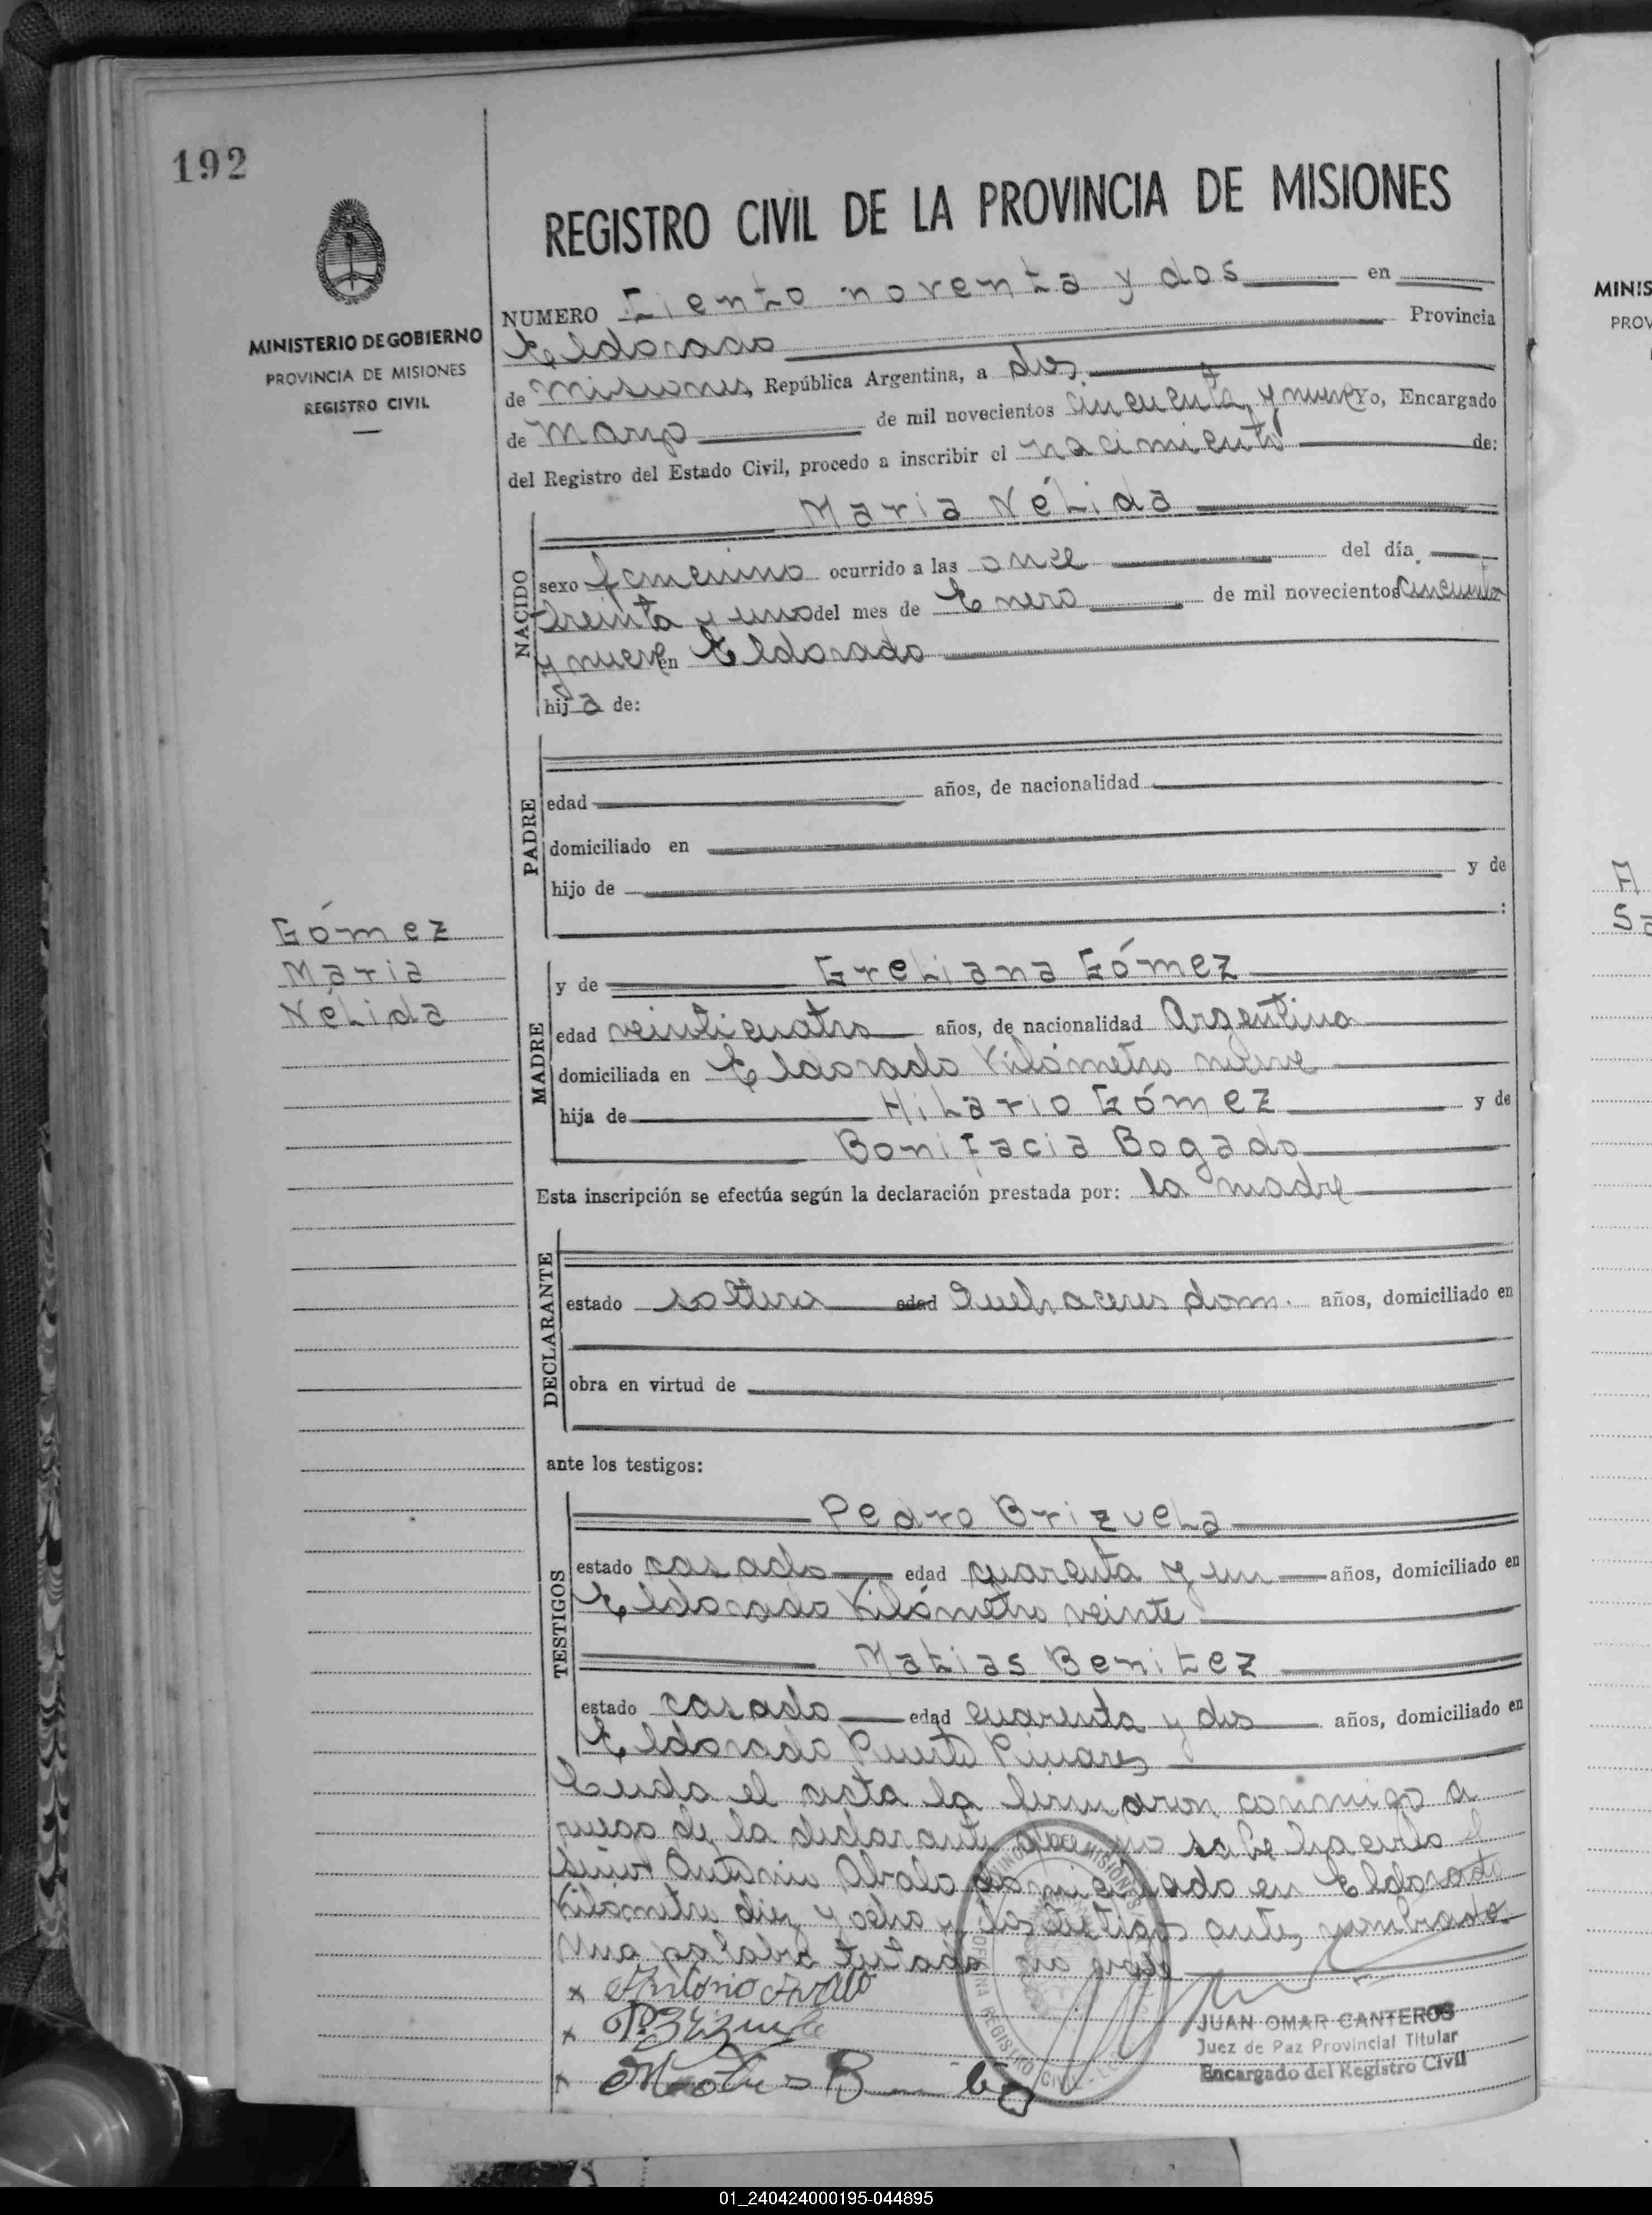 192
MINISTERIO DE GOBIERNO
PROVINCIA DE MISIONES
REGISTRO CIVIL
REGISTRO CIVIL DE LA PROVINCIA DE MISIONES
NUMERO Ciento noventa y dos en
Eldorado Provincia
de Misiones, República Argentina, a dos
de Marzo de mil novecientos cincuenta y nueve Yo, Encargado
del Registro del Estado Civil, procedo a inscribir el nacimiento de:
NACIDO
Maria Nélida
sexo femenino ocurrido a las once del día
treinta y uno del mes de Enero de mil novecientos cincuenta
y nueve en Eldorado
hija de:
PADRE
edad años, de nacionalidad
domiciliado en
hijo de y de
:
Gómez
Maria
Nélida
MADRE
y de Greliana Gómez
edad veinticuatro años, de nacionalidad Argentina
domiciliada en Eldorado Kilómetro nueve
hija de Hilario Gómez y de
Bonifacia Bogado
Esta inscripción se efectúa según la declaración prestada por: la madre
DECLARANTE
estado soltera edad Quehaceres dom. años, domiciliado en
obra en virtud de
ante los testigos:
TESTIGOS
Pedro Brizuela
estado casado edad cuarenta y un años, domiciliado en
Eldorado Kilómetro veinte
Matias Benitez
estado casado edad cuarenta y dos años, domiciliado en
Eldorado Puerto Pinares
Leida el acta la firmaron conmigo a
ruego de la declarante que no sabe hacerlo el
Señor Antonio Abalo domiciliado en Eldorado
Kilómetro diez y ocho y los testigos antes nombrados
Una palabra testada no vale
x Antonio Avalo
x P. Brizuela
x Matias B
JUAN OMAR CANTEROS
Juez de Paz Provincial Titular
Encargado del Registro Civil
MINIS
PROV
A
Sa
01_240424000195-044895